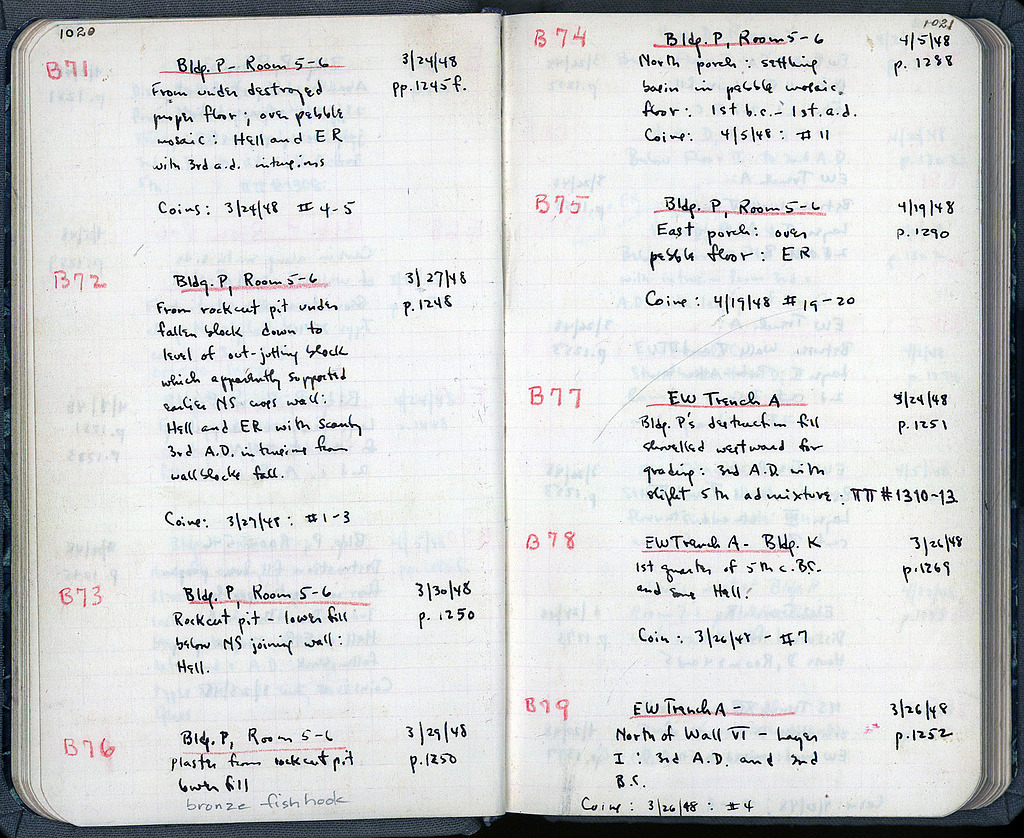 1020
B71 Bldg. P - Room 5-6 3/24/48
From under destroyed pp. 1245 f.
proper floor; over pebble
mosaic: Hell and ER
with 3rd a.d. intrusions
Coins: 3/24/48 #4-5
B72 Bldg. P, Room 5-6 3/27/48
From rockcut pit under p. 1248
fallen block down to
level of out-jutting block
which apparently supported
earlier NS cross wall:
Hell and ER with scanty
3rd A.D. intrusions from
wall blocks fall.
Coins: 3/27/48: #1-3
B73 Bldg. P, Room 5-6 3/30/48
Rockcut pit - lower fill p. 1250
below NS joining wall:
Hell.
B76 Bldg. P, Room 5-6 3/29/48
Plaster from rockcut pit p. 1250
lower fill
bronze fish hook
1021
B74 Bldg. P, Room 5-6 4/5/48
North porch: settling p. 1288
basin in pebble mosaic
floor: 1st b.c. - 1st a.d.
Coins: 4/5/48: #11
B75 Bldg. P, Room 5-6 4/19/48
East porch: over p. 1290
pebble floor: ER
Coins: 4/19/48 #19-20
B77 EW Trench A 3/24/48
Bldg. P's destruction fill p. 1251
shovelled westward for
grading: 3rd A.D. with
slight 5th ad mixture: ΠΠ #1310-13
B78 EW Trench A - Bldg. K 3/26/48
1st quarter of 5th c. B.C. p. 1269
and some Hell:
Coin: 3/26/48 - #7
B79 EW Trench A - 3/26/48
North of Wall VI - Layer p. 1252
I: 3rd A.D. and 2nd
B.C.
Coins: 3/26/48: #4